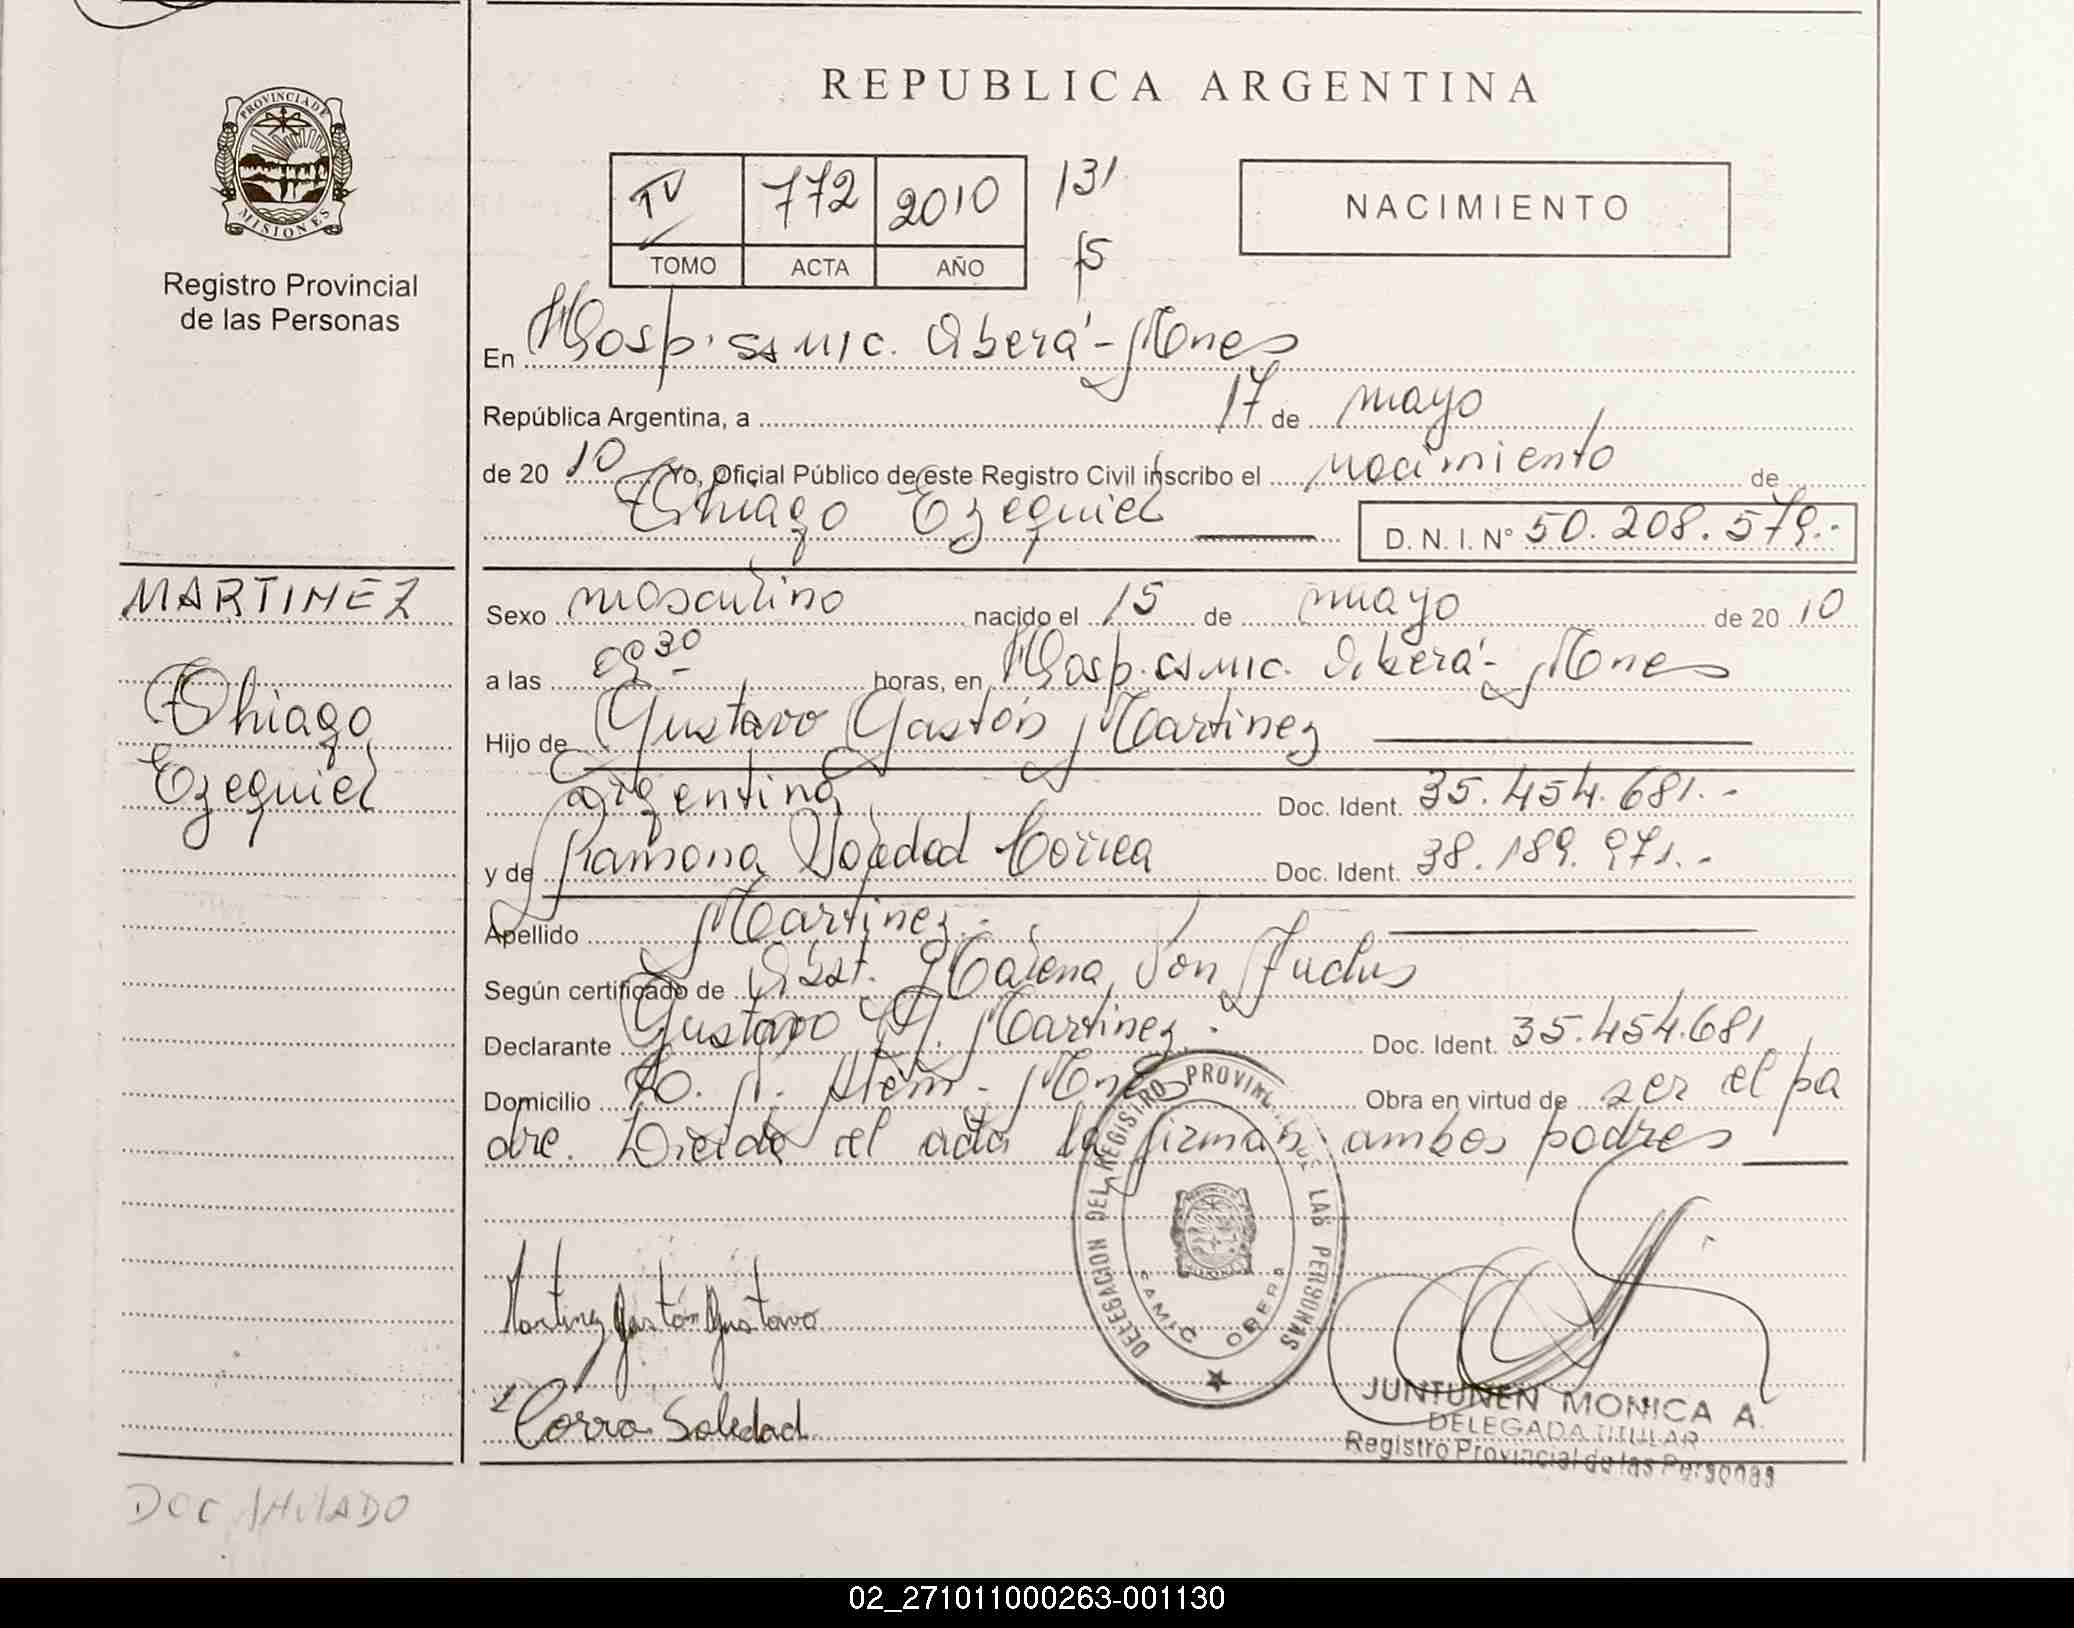 PROVINCIA DE
MISIONES
Registro Provincial
de las Personas
REPUBLICA ARGENTINA
NACIMIENTO
IV 772 2010 131
TOMO ACTA AÑO
En Hosp. SAMIC. Oberá - Mnes
República Argentina, a 17 de mayo
de 20 10 Yo, Oficial Público de este Registro Civil inscribo el nacimiento de
Thiago Ezequiel
D. N. I. Nº 50.208.579.-
MARTINEZ
Thiago
Ezequiel
Sexo masculino nacido el 15 de mayo de 20 10
a las 09 30 horas, en Hosp. SAMIC. Oberá - Mnes
Hijo de Gustavo Gastón Martinez
argentino Doc. Ident. 35.454.681.-
y de Ramona Soledad Correa Doc. Ident. 38.189.971.-
Apellido Martinez.
Según certificado de Obst. Von
Declarante Gustavo G. Martinez. Doc. Ident. 35.454.681
Domicilio Alem - Mnes Obra en virtud de ser el pa
dre. Leida el acta la firman ambos padres
DELEGACION DEL REGISTRO PROVINCIAL DE LAS PERSONAS
SAMIC OBERA
Martinez Gastón Gustavo
Corra Soledad
JUNTUNEN MONICA A.
DELEGADA TITULAR
Registro Provincial de las Personas
DOC ANULADO
02_271011000263-001130